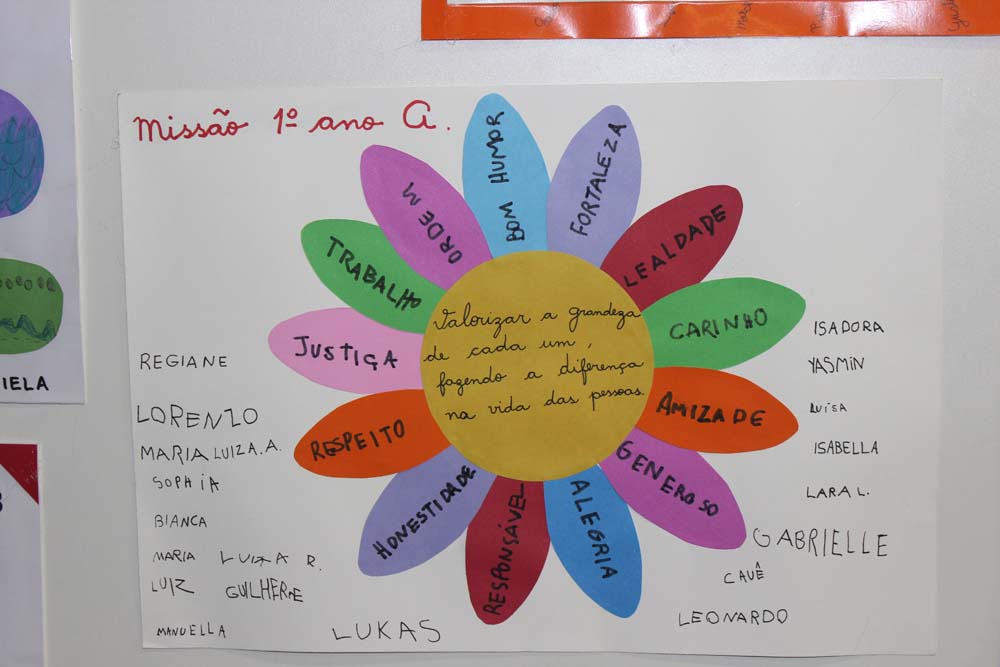 Missão 1º ano A.
BOM HUMOR
FORTALEZA
LEALDADE
CARINHO
AMIZADE
GENEROSO
ALEGRIA
RESPONSÁVEL
HONESTIDADE
RESPEITO
JUSTIÇA
TRABALHO
ORDEM
Valorizar a grandeza
de cada um,
fazendo a diferença
na vida das pessoas.
REGIANE
LORENZO
MARIA LUIZA. A.
SOPHIA
BIANCA
MARIA LUIZA R.
LUIZ GUILHERME
MANUELLA
LUKAS
ISADORA
YASMIN
LUÍSA
ISABELLA
LARA L.
GABRIELLE
CAUÊ
LEONARDO
IELA